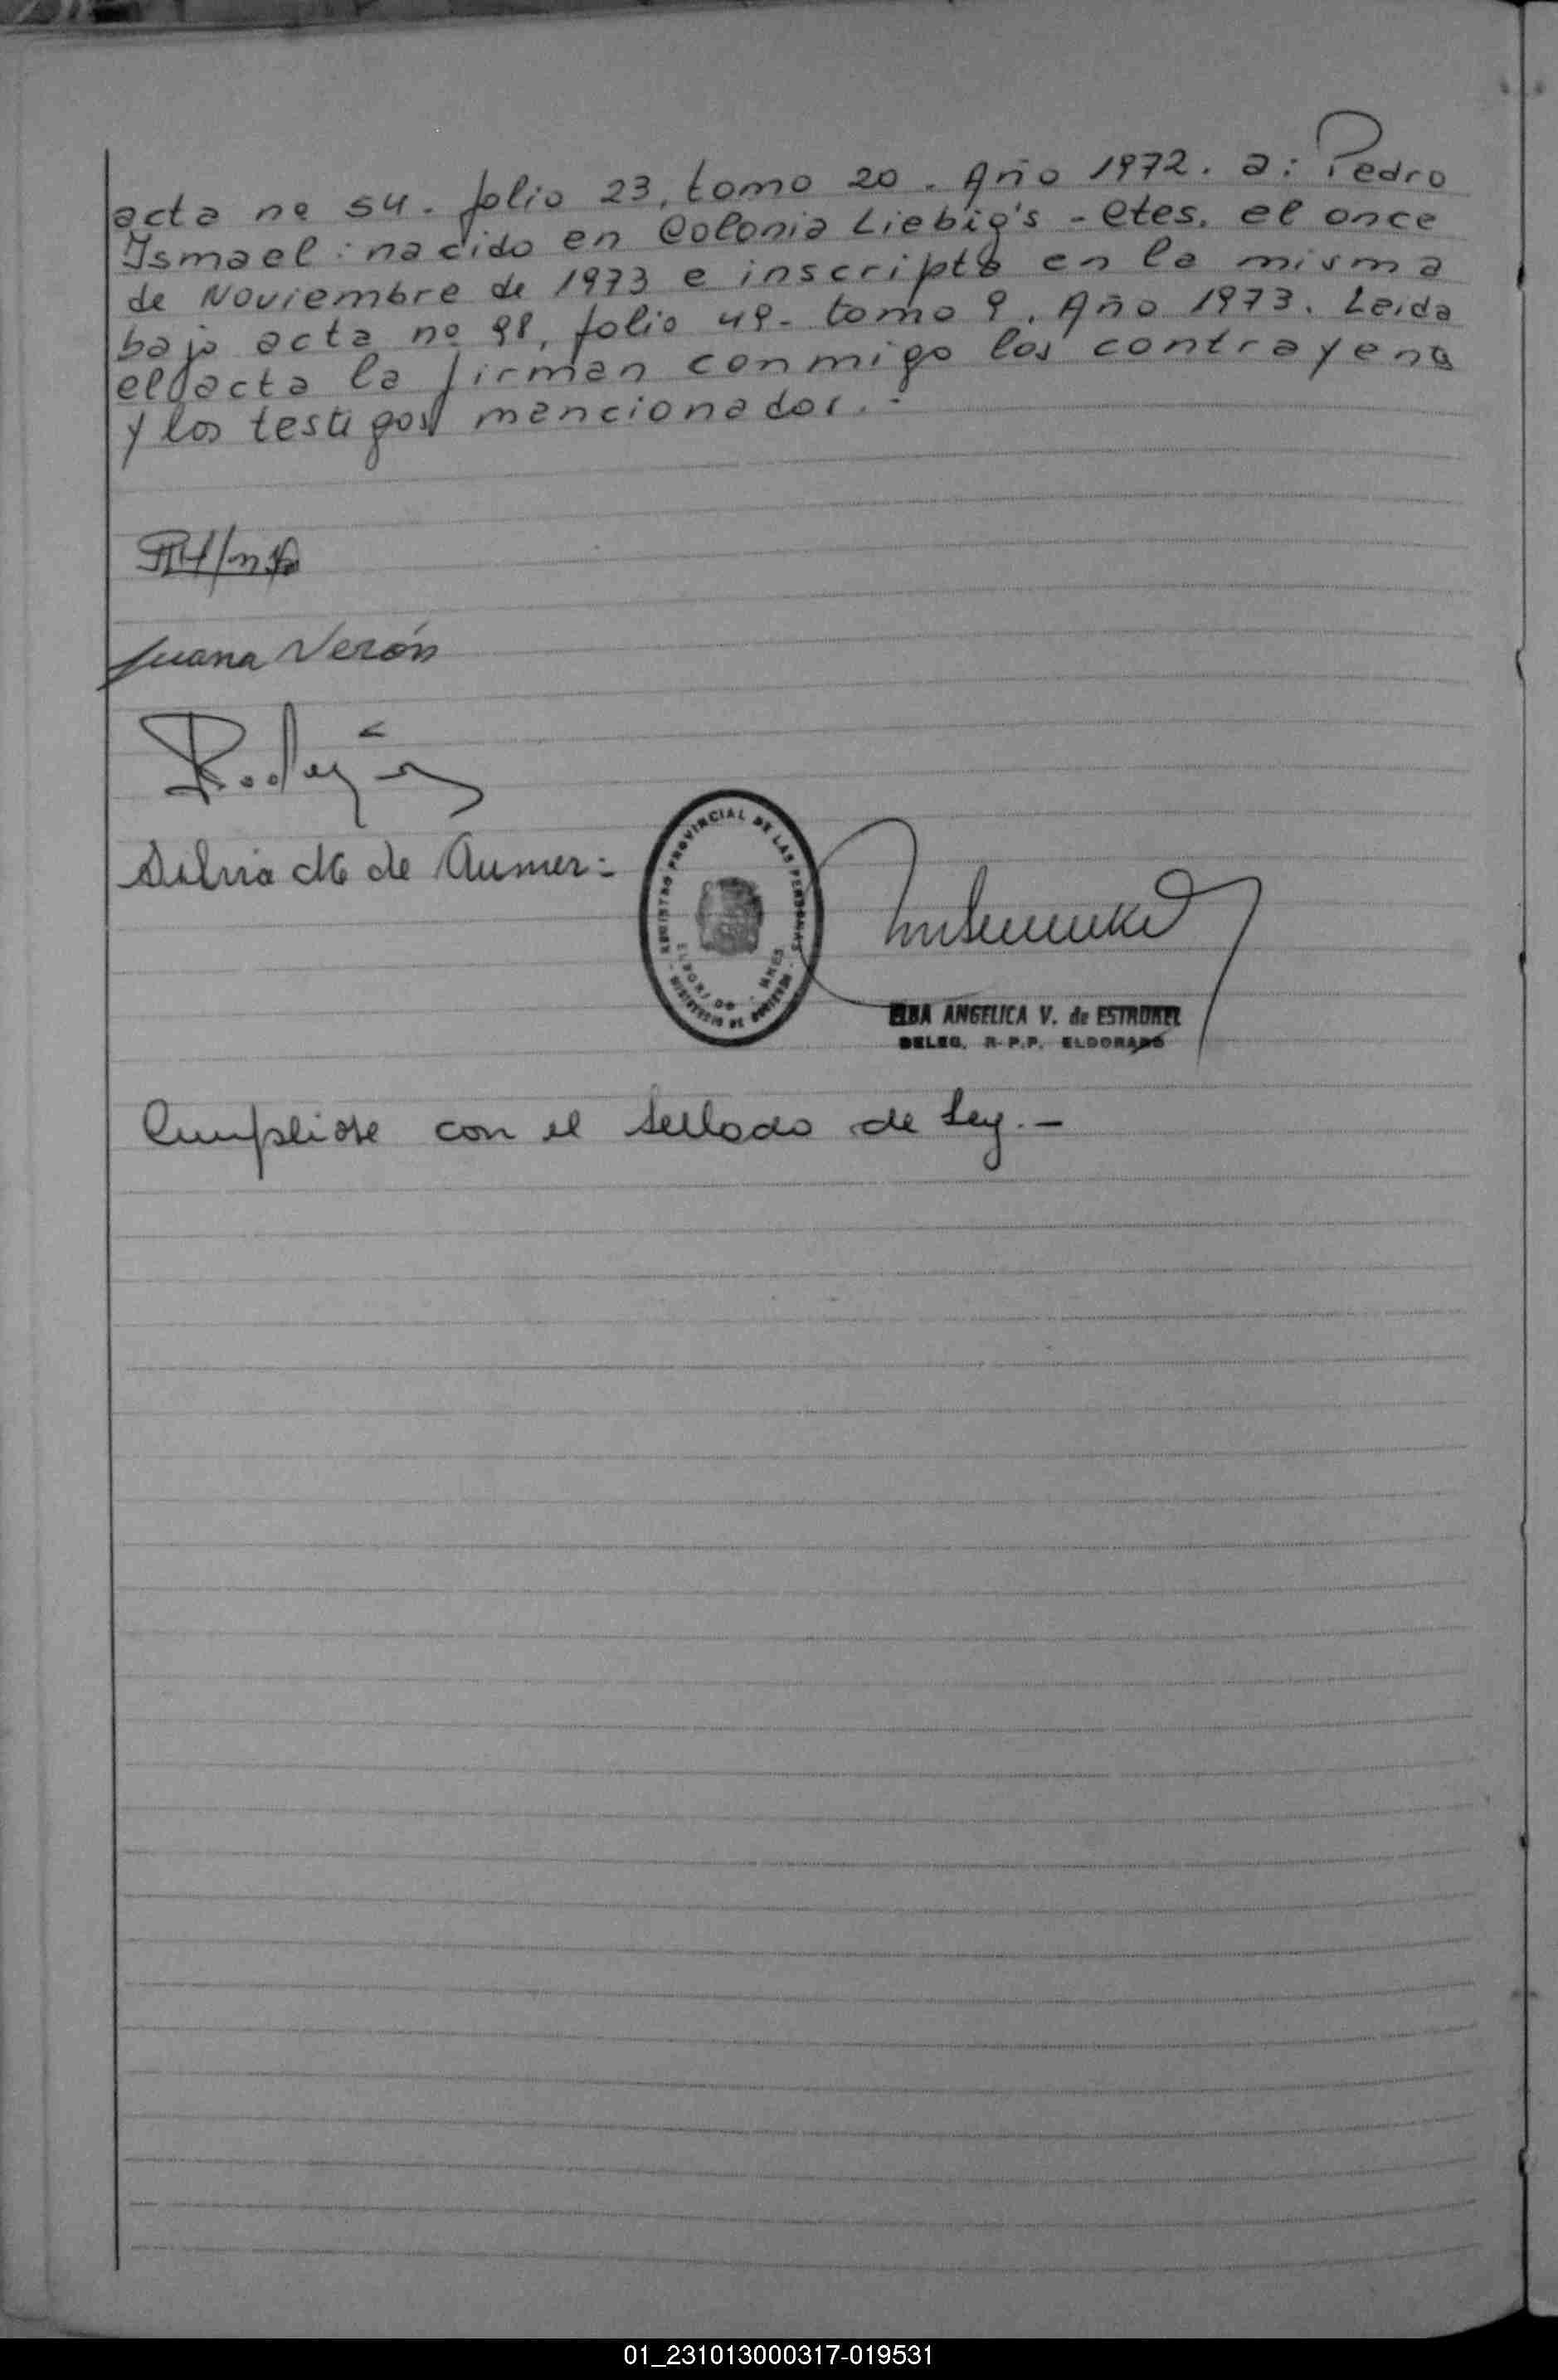 acta nº 54. folio 23, tomo 20. Año 1972. a: Pedro
Ismael: nacido en Colonia Liebig's - Ctes. el once
de Noviembre de 1973 e inscripto en la misma
bajo acta nº 98, folio 49- tomo 9. Año 1973. Leida
el acta la firman conmigo los contrayents
y los testigos mencionados.-
Juana Verón
Silvia M de Aumer=
REGISTRO PROVINCIAL DE LAS PERSONAS
ELDORADO - MNES
- MINISTERIO DE GOBIERNO -
ELBA ANGELICA V. de ESTRUKEL
DELEG. R.P.P. ELDORADO
Cumpliose con el sellado de Ley.-
01_231013000317-019531